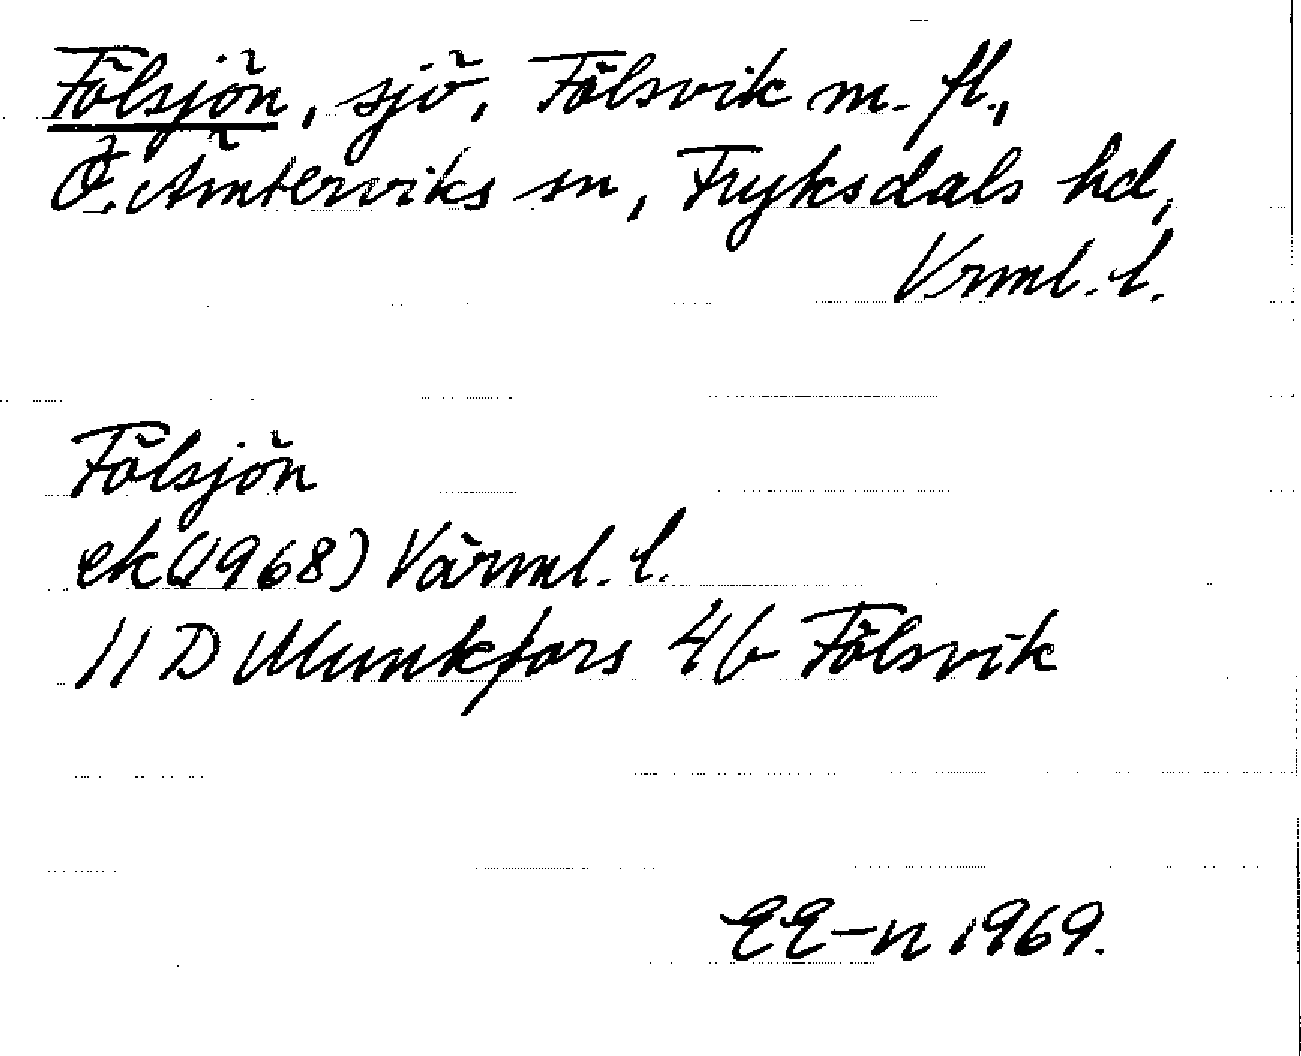 Fölsjön, sjö, Fölsvik m. fl.,
Ö. Ämterviks sn, Fryksdals hd,
Vrml. l.
Fölsjön
ek (1968) Värml. l.
11 D Munkfors 4 b Fölsvik
EE-n 1969.